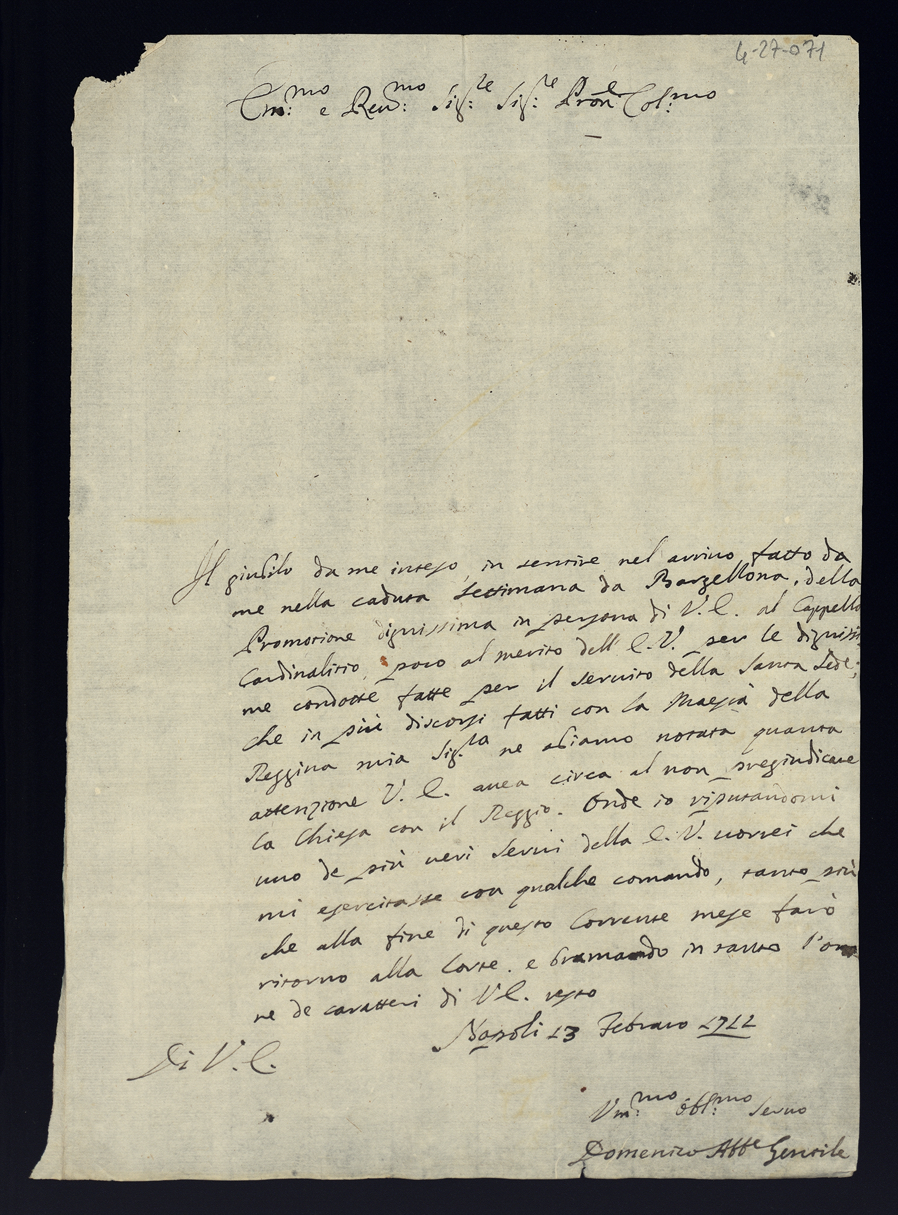 4-27-071
Em.mo e Reu.mo Sig.re Sig.re Pron.e Col.mo
Il giubilo da me inteso, in sentire nel avviso fatto da
me nella caduta settimana da Barzellona, della
Promotione dignissima in persona di V. E. al Cappello
Cardinalitio, poco al merito dell' E. V. per le digniss:
me condotte fatte per il seruitio della Santa Sede;
che in più discorsi fatti con la Maestà della
Reggina mia Sig.ra ne abiamo notata quanta
attenzione V. E. auea circa al non pregiudicare
la Chiesa con il Reggio. Onde io riputandomi
uno de più ueri serui della E. V. uorrei che
mi esercitasse con qualche comando, tanto più
che alla fine di questo Corrente mese farò
ritorno alla Corte. e bramando in tanto l'ono
re de caratteri di V E. resto
Napoli 13 Febraro 1712
Di V. E.
Vm.mo obl.mo seruo
Domenico Abb.e Gentile